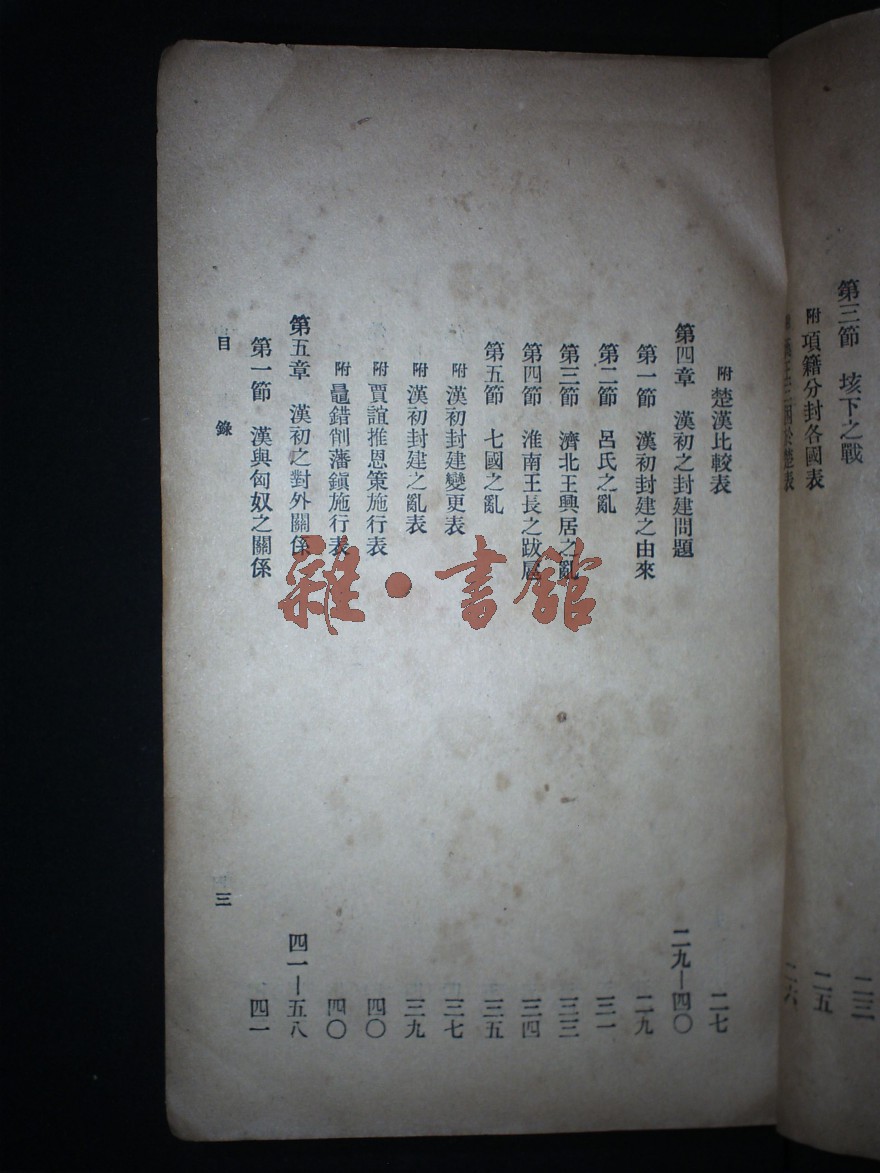 第三節 垓下之戰 二三
附 項籍分封各國表 二五
於楚表 二六
附 楚漢比較表 二七
第四章 漢初之封建問題 二九—四〇
第一節 漢初封建之由來 二九
第二節 呂氏之亂 三一
第三節 濟北王興居之亂 三三
第四節 淮南王長之跋扈 三四
第五節 七國之亂 三五
附 漢初封建變更表 三七
附 漢初封建之亂表 三九
附 賈誼推恩策施行表 四〇
附 鼂錯削藩鎭施行表 四〇
第五章 漢初之對外關係 四一—五八
第一節 漢與匈奴之關係 四一
目錄 三
雜·書館